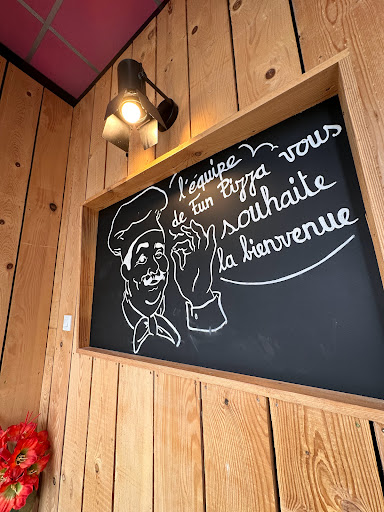 l'équipe
de Fun Pizza vous
souhaite
la bienvenue